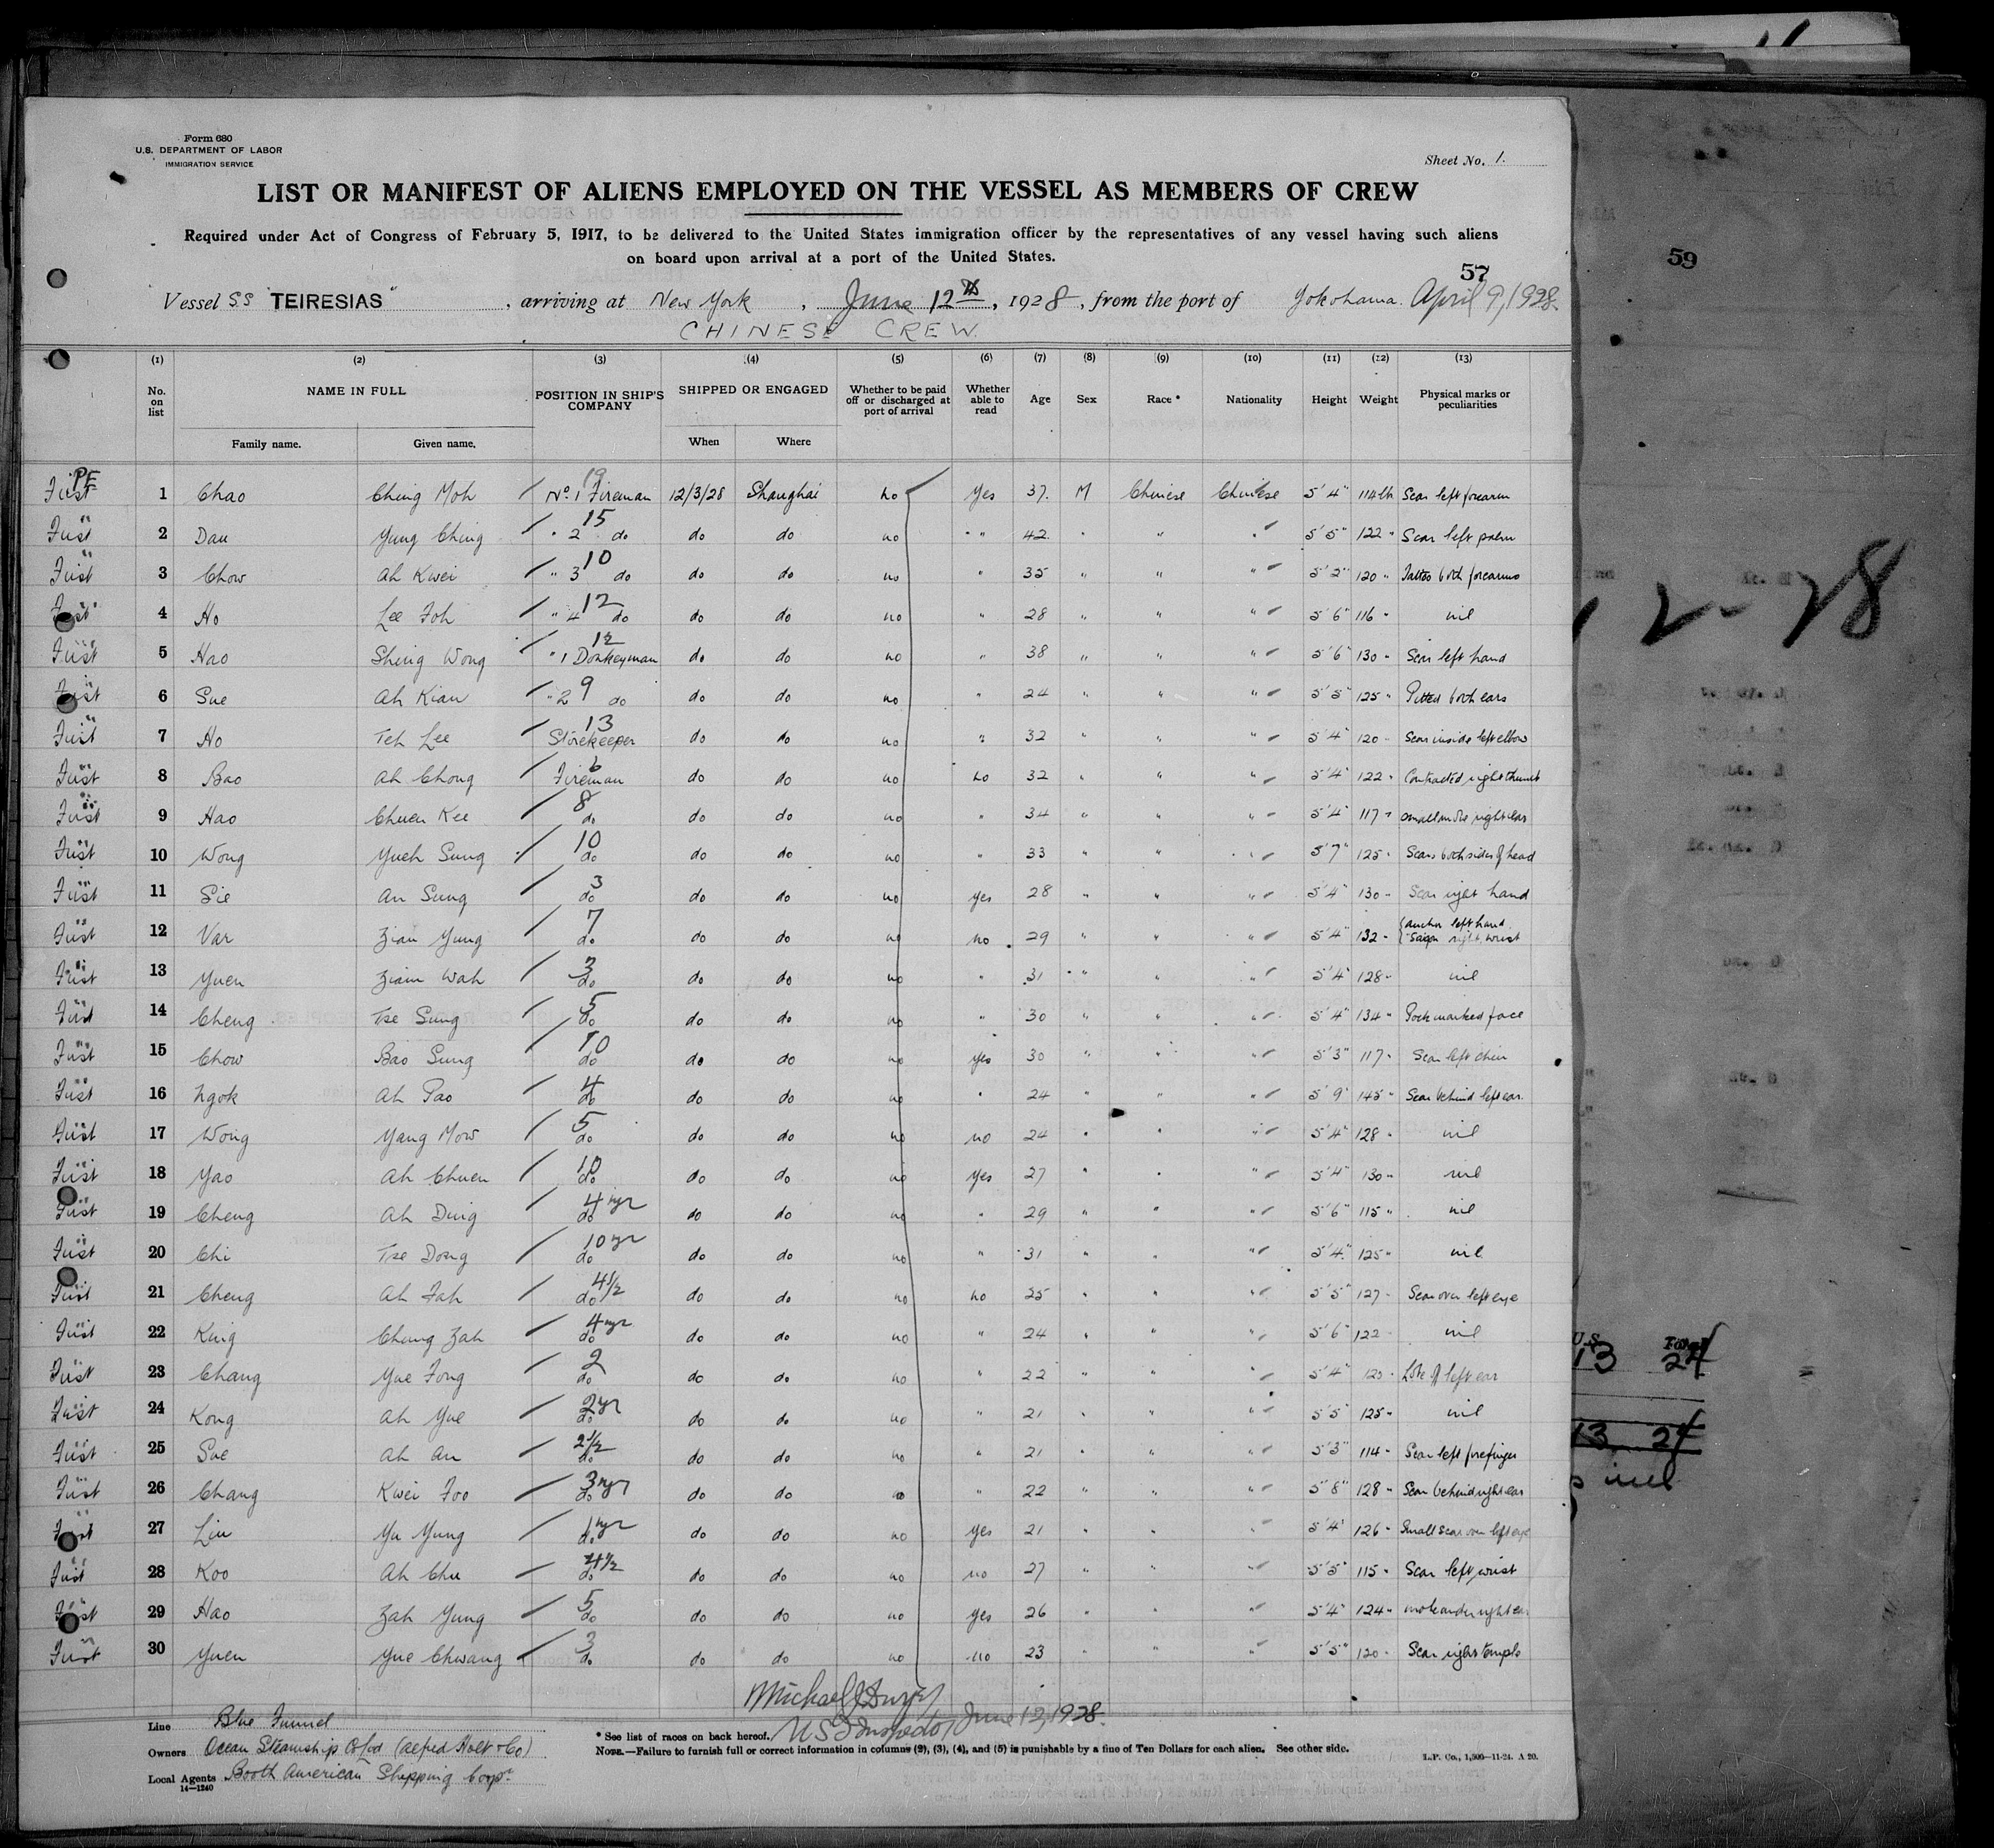 Form 680
U.S. DEPARTMENT OF LABOR
IMMIGRATION SERVICE
Sheet No. 1.
LIST OR MANIFEST OF ALIENS EMPLOYED ON THE VESSEL AS MEMBERS OF CREW
Required under Act of Congress of February 5, 1917, to be delivered to the United States immigration officer by the representatives of any vessel having such aliens
on board upon arrival at a port of the United States.
57
59
Vessel S.S "TEIRESIAS", arriving at New York, June 12th, 1928, from the port of Yokohama. April 9, 1928.
CHINESE CREW.
(1) (2) (3) (4) (5) (6) (7) (8) (9) (10) (11) (12) (13)
No. on list NAME IN FULL POSITION IN SHIP'S COMPANY SHIPPED OR ENGAGED Whether to be paid off or discharged at port of arrival Whether able to read Age Sex Race* Nationality Height Weight Physical marks or peculiarities
Family name. Given name. When Where
PE
First 1 Chao Ching Moh 19 No. 1 Fireman 12/3/28 Shanghai no Yes 37. M Chinese Chinese 5' 4" 114 lb Scar left forearm
First 2 Dau Yung Ching 15 " 2 do do do no " 42 " " " 5' 5" 122 " Scar left palm
First 3 Chow Ah Kwei 10 " 3 do do do no " 35 " " " 5' 2" 120 " Tattoo both forearms
First 4 Ho Lee Foh 12 " 4 do do do no " 28 " " " 5' 6" 116 " nil
First 5 Hao Shing Wong 12 " 1 Donkeyman do do no " 38 " " " 5' 6" 130 " Scar left hand
First 6 Sue Ah Kian 9 " 2 do do do no " 24 " " " 5' 5" 125 " Pitted both ears
First 7 Ho Teh Lee 13 Storekeeper do do no " 32 " " " 5' 4" 120 " Scar inside left elbow
First 8 Bao Ah Chong 6 Fireman do do no no 32 " " " 5' 4" 122 " Contracted right thumb
First 9 Hao Chuen Kee 8 do do do no " 34 " " " 5' 4" 117 " small mole right ear
First 10 Wong Yueh Sung 10 do do do no " 33 " " " 5' 7" 125 " Scars both sides of head
First 11 Sie An Sung 3 do do do no yes 28 " " " 5' 4" 130 " Scar right hand
First 12 Var Zian Yung 7 do do do no no 29 " " " 5' 4" 132 " anchor left hand
right wrist
First 13 Yuen Ziam Wah 3 do do do no " 31 " " " 5' 4" 128 " nil
First 14 Cheng Tse Sung 5 do do do no " 30 " " " 5' 4" 134 " Pock marked face
First 15 Chow Bao Sung 10 do do do no yes 30 " " " 5' 3" 117 " Scar left chin
First 16 Ngok Ah Pao 4 do do do no " 24 " " " 5' 9" 145 " Scar behind left ear
First 17 Wong Yang Mow 5 do do do no no 24 " " " 5' 4" 128 " nil
First 18 Yao Ah Chuen 10 do do do no Yes 27 " " " 5' 4" 130 " nil
First 19 Cheng Ah Ding 4 yr do do do no " 29 " " " 5' 6" 115 " nil
First 20 Chi Tse Dong 10 yr do do do no " 31 " " " 5' 4" 125 " nil
First 21 Cheng Ah Fah 4 1/2 do do do no no 25 " " " 5' 5" 127 " Scar over left eye
First 22 King Chung Zah 4 yr do do do no " 24 " " " 5' 6" 122 " nil
First 23 Chang Yue Fong 2 do do do no " 22 " " " 5' 4" 120 " Lobe of left ear
First 24 Kong Ah Yue 2 yr do do do no " 21 " " " 5' 5" 125 " nil
First 25 Sue Ah An 2 1/2 do do do no " 21 " " " 5' 3" 114 " Scar left forefinger
First 26 Chang Kwei Foo 3 yr do do do no " 22 " " " 5' 8" 128 " Scar behind right ear
First 27 Liu Yu Yung 1 yr do do do no Yes 21 " " " 5' 4" 126 " Small scar over left eye
First 28 Koo Ah Chu 4 1/2 do do do no no 27 " " " 5' 5" 115 " Scar left wrist
First 29 Hao Zah Yung 5 do do do no Yes 26 " " " 5' 4" 124 " mole under right ear
First 30 Yuen Yue Chwang 3 do do do no no 23 " " " 5' 5" 120 " Scar right temple
Michael J
US Inspector June 12, 1928.
Line Blue Funnel
Owners Ocean Steamship Co Ltd (Alfred Holt & Co)
Local Agents Booth American Shipping Corpn
14—1240
* See list of races on back hereof.
NOTE.—Failure to furnish full or correct information in columns (2), (3), (4), and (5) is punishable by a fine of Ten Dollars for each alien. See other side.
L.P. Co., 1,500—11-24. A 20.
2-28
U.S.
13 24
13 24